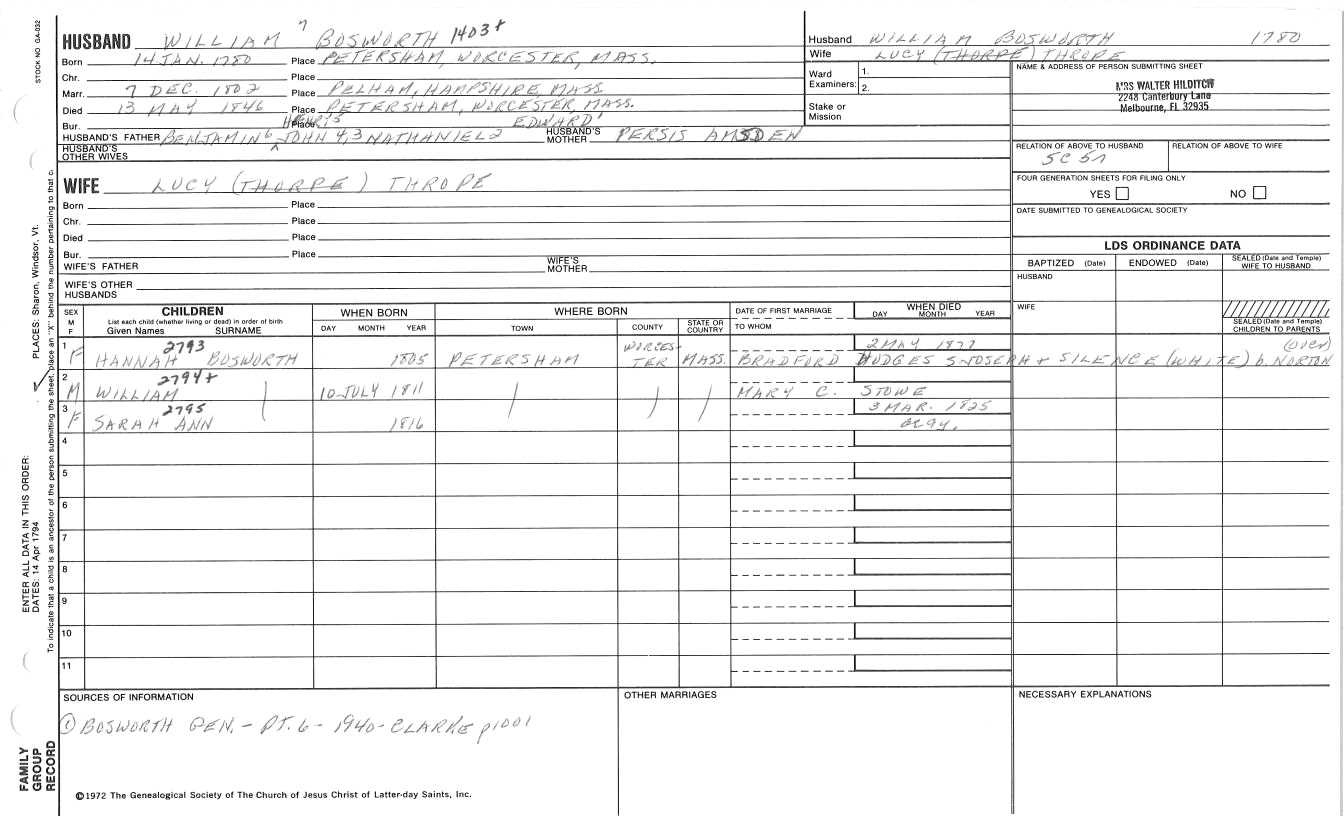 STOCK NO GA-032
HUSBAND WILLIAM 7 BOSWORTH 1403+
Born 14 JAN. 1780 Place PETERSHAM, WORCESTER, MASS.
Chr. Place
Marr. 7 DEC. 1802 Place PELHAM, HAMPSHIRE, MASS
Died 13 MAY 1846 Place PETERSHAM, WORCESTER, MASS.
Bur. Place
HUSBAND'S FATHER BENJAMIN 6 HENRY 5 JOHN 4,3 NATHANIEL 2 EDWARD 1 HUSBAND'S MOTHER PERSIS AMSDEN
HUSBAND'S OTHER WIVES
Husband WILLIAM BOSWORTH 1780
Wife LUCY (THORPE) THROPE
Ward Examiners: 1.
2.
Stake or Mission
NAME & ADDRESS OF PERSON SUBMITTING SHEET
MRS WALTER HILDITCH
2248 Canterbury Lane
Melbourne, FL 32935
RELATION OF ABOVE TO HUSBAND RELATION OF ABOVE TO WIFE
FOUR GENERATION SHEETS FOR FILING ONLY
YES NO
DATE SUBMITTED TO GENEALOGICAL SOCIETY
WIFE LUCY (THORPE) THROPE
Born Place
Chr. Place
Died Place
Bur. Place
WIFE'S FATHER WIFE'S MOTHER
WIFE'S OTHER HUSBANDS
LDS ORDINANCE DATA
BAPTIZED (Date) ENDOWED (Date) SEALED (Date and Temple) WIFE TO HUSBAND
HUSBAND
WIFE
SEALED (Date and Temple) CHILDREN TO PARENTS
SEX M F CHILDREN List each child (whether living or dead) in order of birth Given Names SURNAME
WHEN BORN DAY MONTH YEAR
WHERE BORN TOWN COUNTY STATE OR COUNTRY
DATE OF FIRST MARRIAGE TO WHOM
WHEN DIED DAY MONTH YEAR
1 2793 WORCES- 2 MAY 1877 (OVER)
F HANNAH BOSWORTH 1805 PETERSHAM TER MASS. BRADFORD HODGES S-JOSEPH + SILENCE (WHITE) b. NORTON
2 2794+
M WILLIAM 10 JULY 1811 MARY C. STOWE
3 2795 3 MAR. 1825
F SARAH ANN 1816 ae 9y.
4
5
6
7
8
9
10
11
SOURCES OF INFORMATION
1 BOSWORTH GEN. - PT. 6 - 1940 - CLARKE p1001
OTHER MARRIAGES
NECESSARY EXPLANATIONS
©1972 The Genealogical Society of The Church of Jesus Christ of Latter-day Saints, Inc.
FAMILY GROUP RECORD
ENTER ALL DATA IN THIS ORDER:
DATES: 14 Apr 1794
PLACES: Sharon, Windsor, Vt.
To indicate that a child is an ancestor of the person submitting the sheet, place an "X" behind the number pertaining to that c.